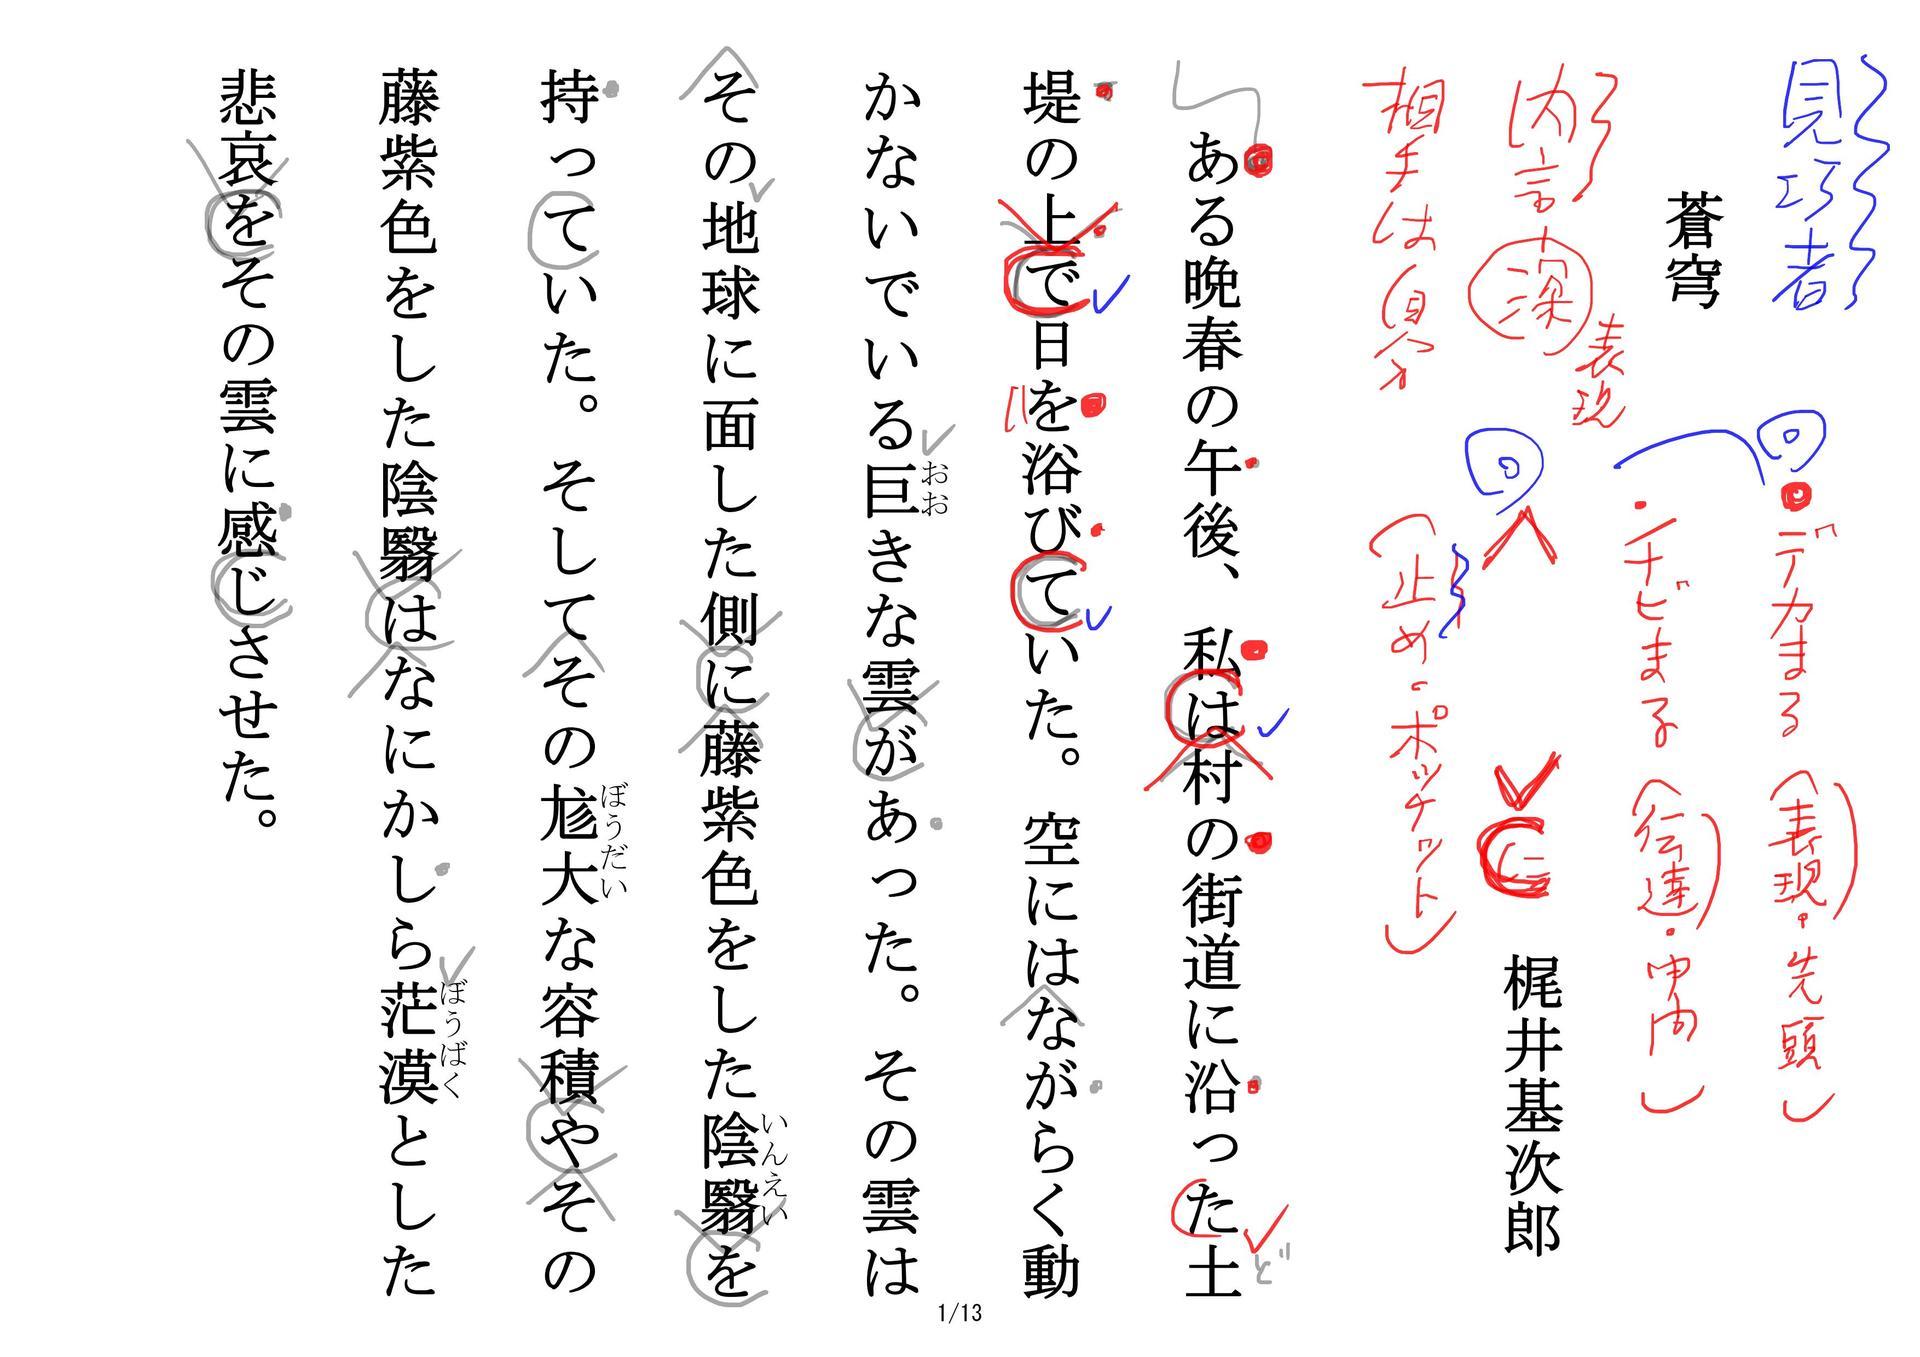 見巧者
蒼穹
内言 深 表現
相手は自分
デカまる（表現・先頭）
チビまる（伝達・中内）
（止め・ポッチャット）
梶井基次郎
ある晩春の午後、私は村の街道に沿った土
ど
堤の上で日を浴びていた。空にはながらく動
かないでいる巨きな雲があった。その雲は
おお
その地球に面した側に藤紫色をした陰翳を
いんえい
持っていた。そしてその尨大な容積やその
ぼうだい
藤紫色をした陰翳はなにかしら茫漠とした
ぼうばく
悲哀をその雲に感じさせた。
1/13